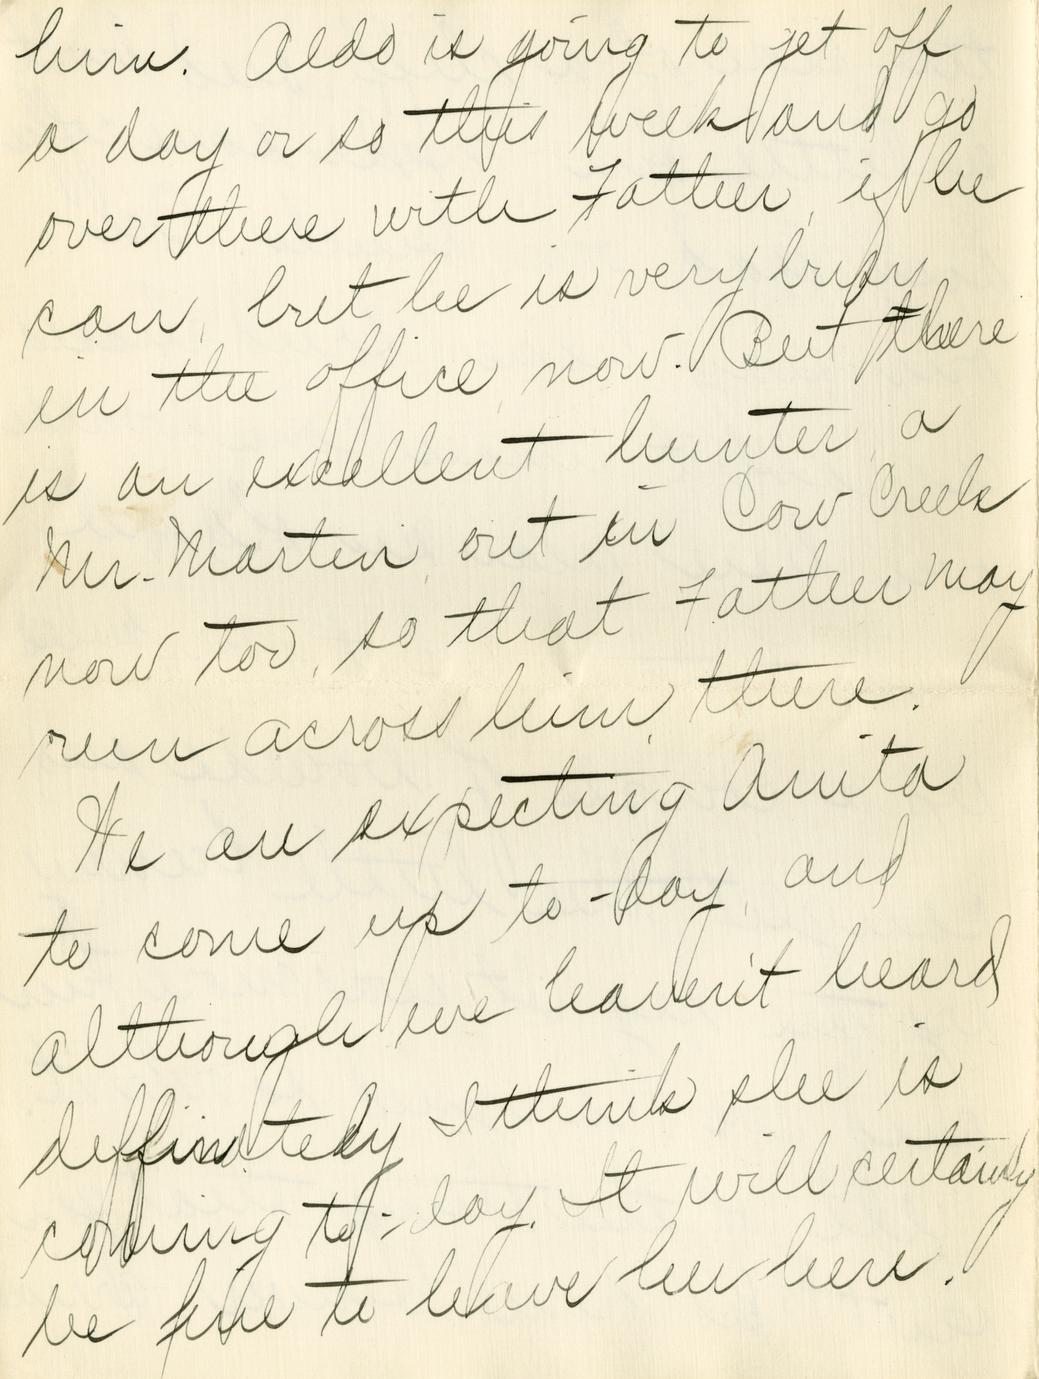 him. Aldo is going to get off
a day or so this week and go
over there with Father, if he
can, but he is very busy
in the office, now. But there
is an excellent hunter, a
Mr. Martin, out in Cow Creek
now too, so that Father may
run across him, there.
We are expecting Anita
to come up to-day, and
although we haven't heard
deffinately I think she is
coming to-day. It will certainly
be fine to have her here.